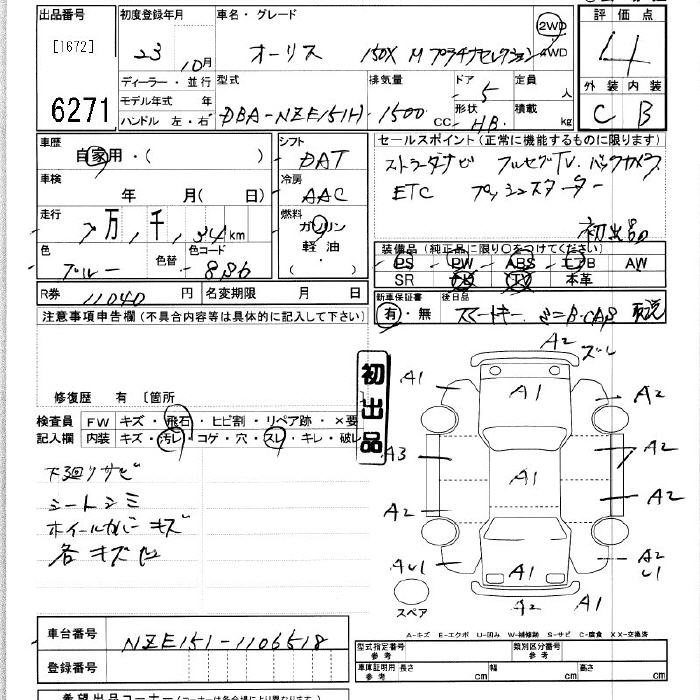 出品番号
[1672]
6271
初度登録年月
23 10月
車名・グレード
オーリス 150X M プラチナセレクション
2WD
4WD
評価点
4
外装 内装
C B
ディーラー・並行
モデル年式 年
ハンドル 左・右
型式
DBA-NZE151H
排気量
1500 CC
ドア
5
形状
HB
定員
人
積載
kg
車歴
自家用・( )
車検
年 月( 日)
走行
7万,千,
km
色
ブルー
色替
色コード
8S6
R券
11040 円
名変期限 月 日
シフト
DAT
冷房
AAC
燃料
ガソリン
軽油
・
( )
セールスポイント(正常に機能するものに限ります)
ストラーダナビ フルセグTV. バックカメラ
ETC プッシュスターター
初出品
装備品(純正品に限り○をつけてください)
PS PW ABS エアB AW
SR ナビ TV 本革
新車保証書
有・無
後日品
スマートキー. ミニB-CAS 取説
注意事項申告欄(不具合内容等は具体的に記入して下さい)
修復歴 有 〔箇所
初出品
検査員
記入欄
FW キズ・飛石・ヒビ割・リペア跡・×要
内装 キズ・汚レ・コゲ・穴・スレ・キレ・破レ
下廻りサビ
シートシミ
ホイールカバーキズ
各キズ凹
A2
ズレ
A1 A1 A2
A3 A2
A1
A2 A2
AU1 A1 A2
U1
A2 A1
スペア
A-キズ E-エクボ U-凹み W-補修跡 S-サビ C-腐食 XX-交換済
車台番号
NZE151-1106518
登録番号
型式指定番号
参考
類別区分番号
参考
車庫証明用
参考
長さ cm 幅 cm 高さ cm
希望出品コーナー(コーナーは各会場により異なります)